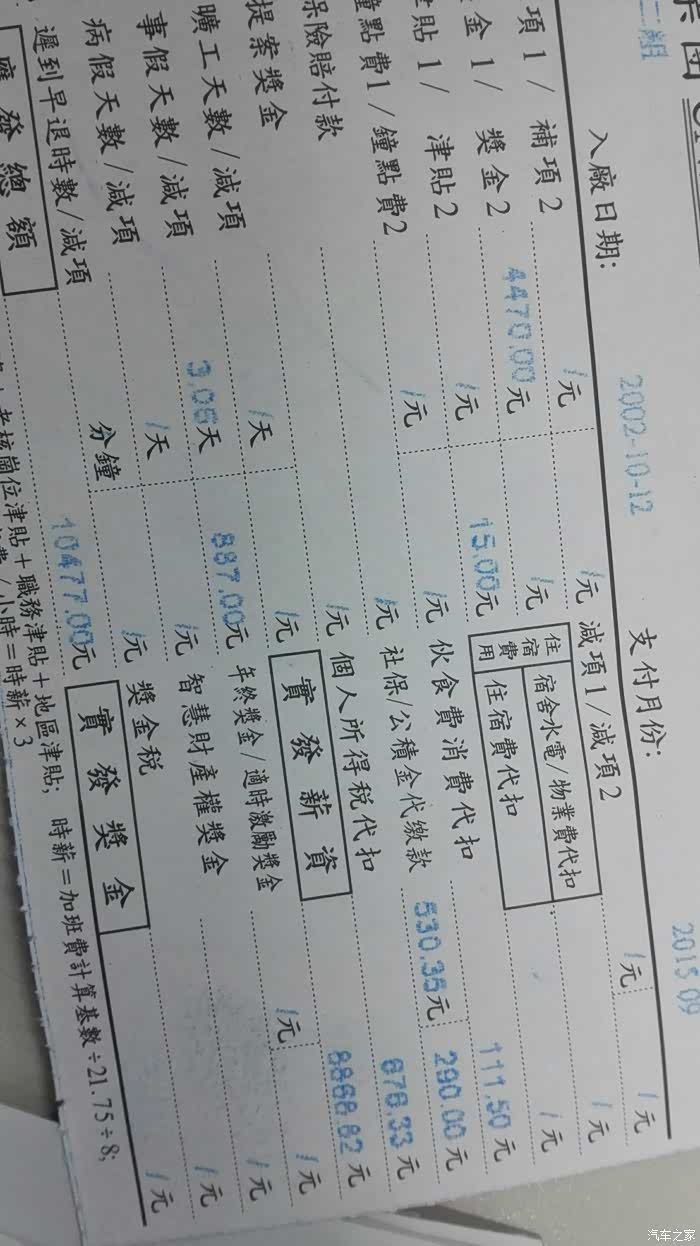 二組
入廠日期: 2002-10-12 支付月份: 2015 09
項1/補項2 /元 /元 減項1/減項2 /元 /元
金1/獎金2 4470.00元 /元 住宿費用 宿舍水電/物業費代扣 /元
貼1/津貼2 /元 15.00元 住宿費代扣 /元
鐘點費1/鐘點費2 /元 /元 伙食費消費代扣 111.50元
保險賠付款 /元 社保/公積金代繳款 530.35元 290.00元
提案獎金 /元 個人所得稅代扣 676.33元
曠工天數/減項 /天 /元 實發薪資 8868.82元
事假天數/減項 3.06天 887.00元 年終獎金/適時激勵獎金 /元 /元
病假天數/減項 /天 /元 智慧財產權獎金 /元
遲到早退時數/減項 分鐘 /元 獎金稅 /元
應發總額 10477.00元 實發獎金 /元
考核崗位津貼+職務津貼+地區津貼; 時薪=加班費計算基數÷21.75÷8;
/小時=時薪×3
汽车之家